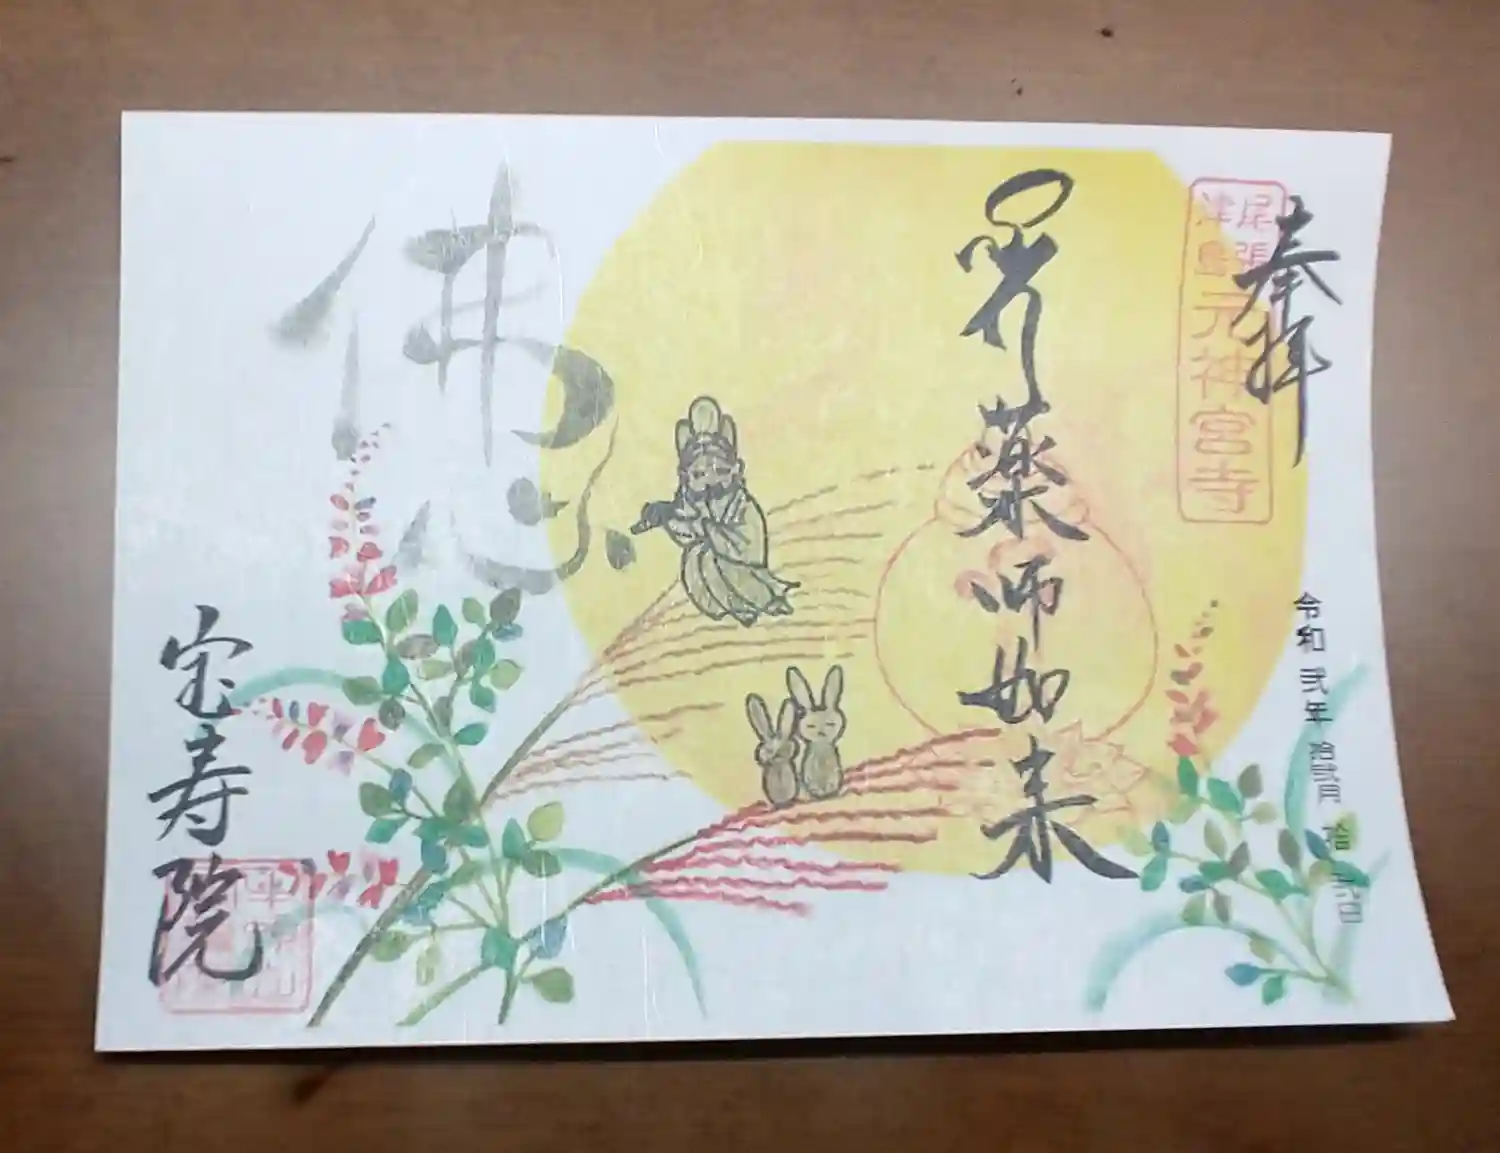 奉拝
尾張
津島
元神宮寺
令和 弐年 拾弐月 拾 弐日
薬師如来
佛心
宝寿院